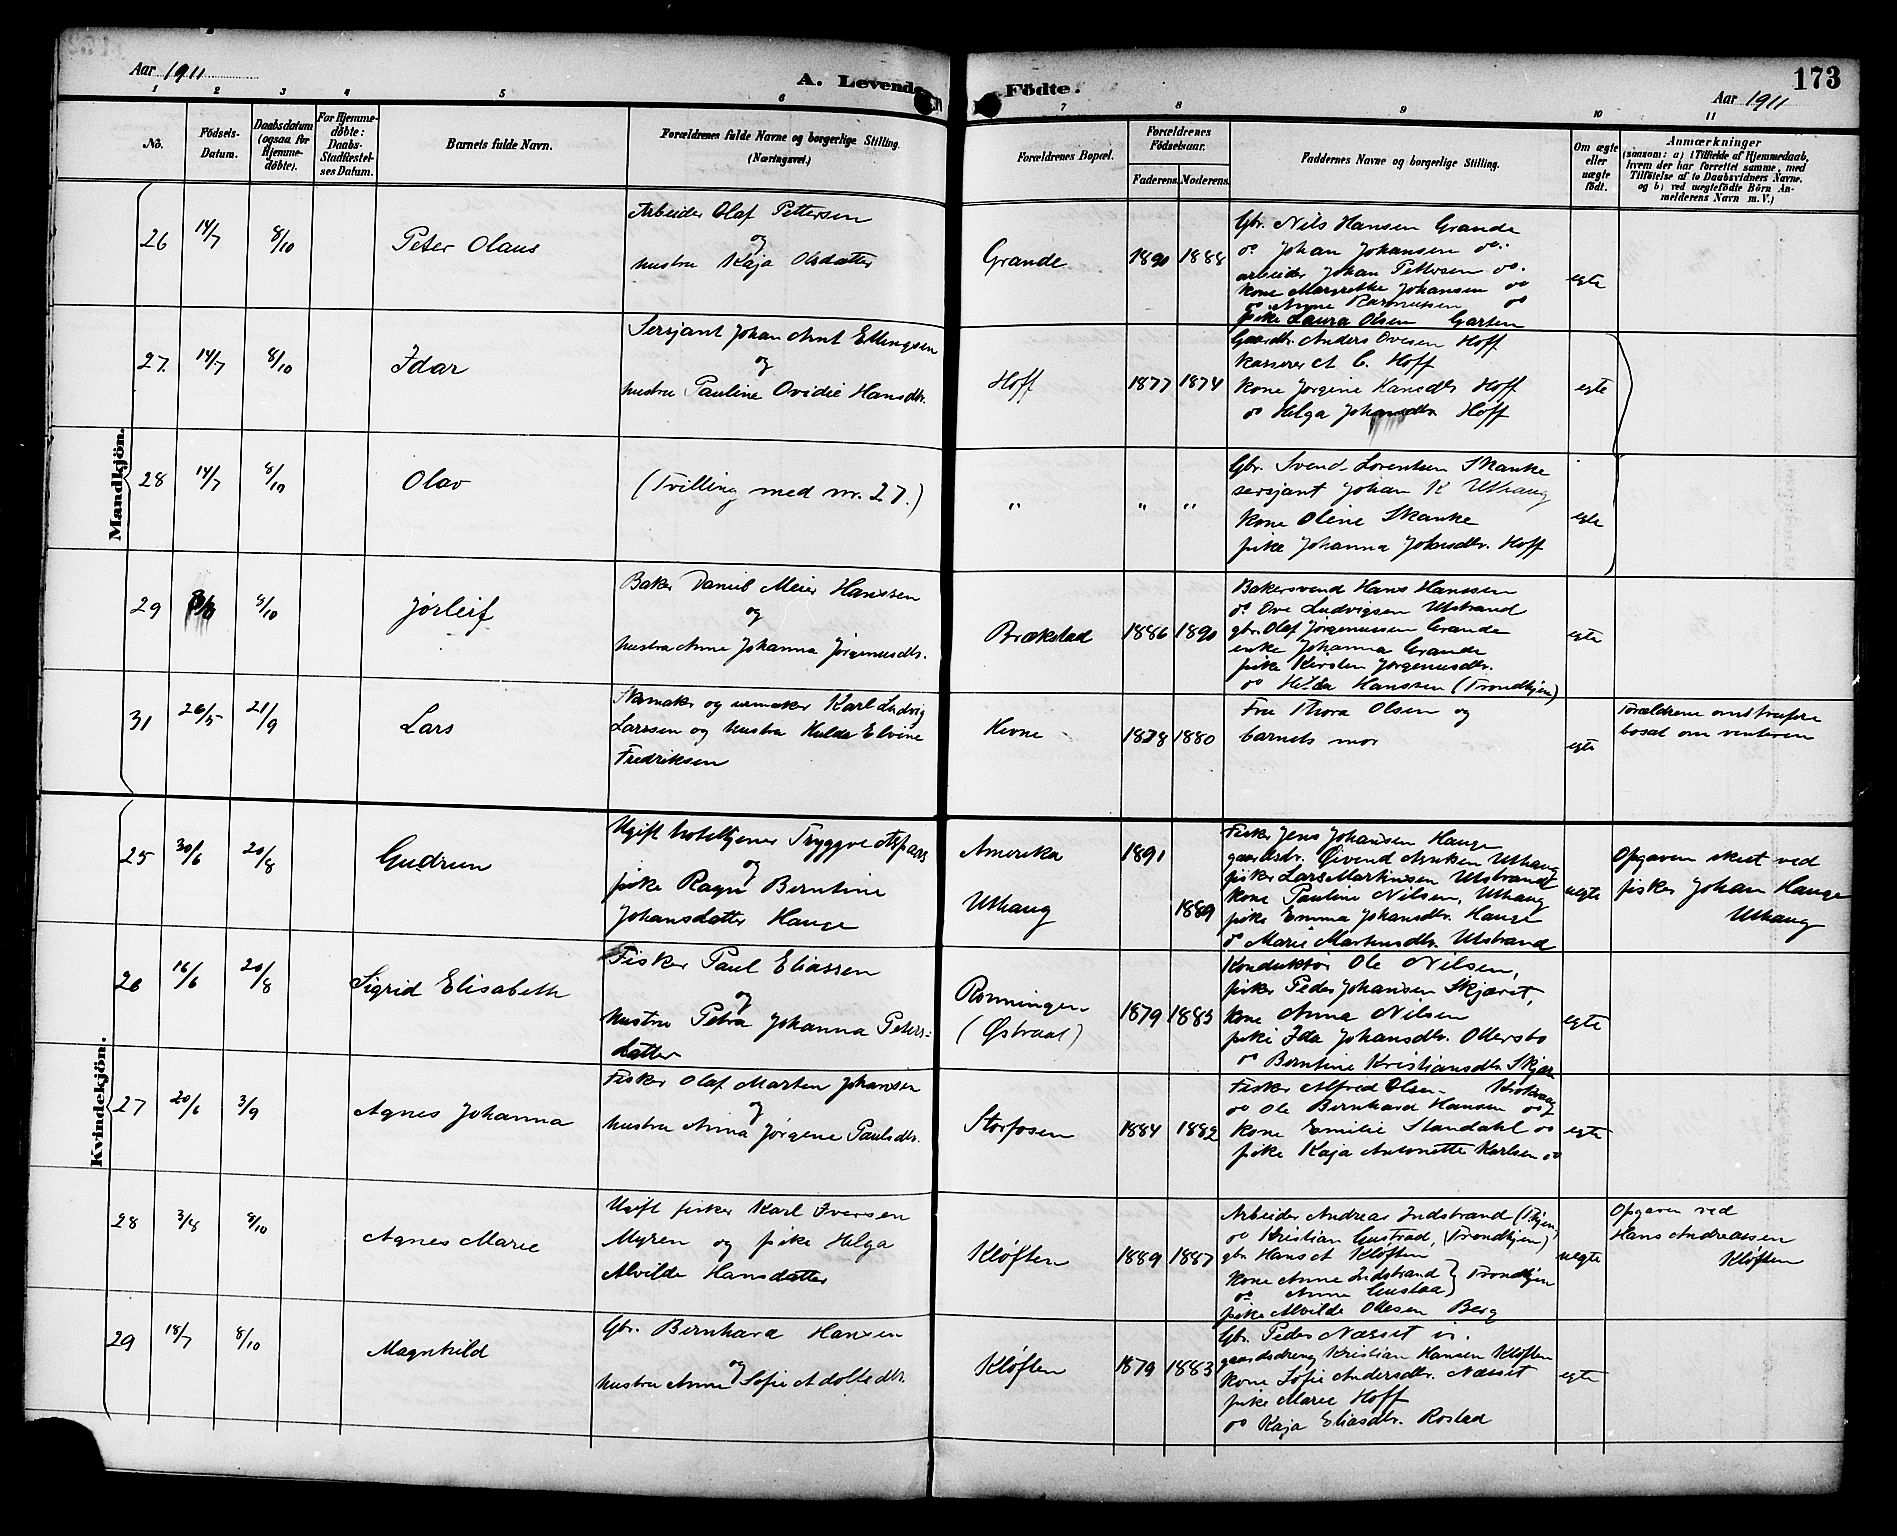 Aar 1911
A. Levende Födte.
173
Aar 1911
1 2 3 4 5 6 7 8 9 10 11
No.
Födsels-
Datum.
Daabsdatum
(ogsaa for
Hjemme-
døbte).
For Hjemme-
døbte:
Daabs-
Stadfæstel-
ses Datum.
Barnets fulde Navn.
Forældrenes fulde Navne og borgerlige Stilling.
(Næringsvei.)
Forældrenes Bopæl.
Forældrenes
Födselsaar.
Faderens. Moderens.
Faddernes Navne og borgerlige Stilling.
Om ægte
eller
uægte
født.
Anmærkninger
(saasom: a) i Tilfælde af Hjemmedaab,
hvem der har forrettet samme, med
Tilføielse af to Daabsvidners Navne.
og b) ved uægtefödte Börn An-
melderens Navn m. V.)
Mandkjön.
26 14/7 8/10 Peter Olaus
Arbeider Olaf Pettersen
og
hustru Kaja Olsdatter
Grande 1890 1888
Gbr. Nils Hansen Grande
do Johan Johansen do.
arbeider Johan Pettersen do.
kone Margrethe Johansen do
do Anne Rasmussen do
pike Laura Olsen Garten
egte
27. 14/7 8/10 Idar
Sersjant Johan Arnt Ellingsen
og
hustru Pauline Ovidie Hansdtr.
Hoff 1877 1874
Gaardbr. Anders Ovesen Hoff
Kasserer A C. Hoff
Kone Jørgine Hansdtr Hoff
do Helga Johansdtr. Hoff
egte
28 14/7 8/10 Olav
(Tvilling med nr. 27.)
" " "
Gbr. Svend Lorentsen Skanke
sersjant Johan K Uthaug
Kone Oline Skanke
pike Johanna Johnsdtr. Hoff
egte
29 8/10 Jørleif
Baker Daniel Meier Hanssen
og
hustru Anne Johanna Jørgensdtr.
Brækstad 1886 1890
Bakersvend Hans Hanssen
do Ove Ludvigsen Ulstrand
gbr. Olaf Jørgenussen Grande
enke Johanna Grande
pike Kirsten Jørgenusdtr.
do Hilda Hanssen (Trondhjem)
egte
31 26/5 21/9 Lars
Skomaker og urmaker Karl Ludvig
Larssen og hustru Hulda Elvine
Fredriksen
Hevne 1878 1880
Fru Thora Olsen og
barnets mor
egte
Forældrene omstreifere
bosat om vinteren
Kvindekjön.
25 30/6 20/8 Gudrun
Ugift hotelltjener Tryggve Aspaas
og
pike Ragna Berntine
Johansdatter Hauge
Amerika 1891
Uthaug 1889
Fisker Jens Johansen Hauge
gaardbr. Øivend Arntsen Uthaug
fisker Lars Martinsen Ulstrand
kone Pauline Nilsen, Uthaug
pike Emma Johansdtr. Hauge
do Marie Martinusdtr. Ulstrand
uegte
Opgaven skeet ved
fisker Johan Hauge
Uthaug
26 16/6 20/8 Sigrid Elisabeth
Fisker Paul Eliassen
og
hustru Petra Johanna Peters-
datter
Rønningen
(Østraat) 1879 1883
Konduktør Ole Nilsen,
fisker Peder Johansen Skjæret,
kone Anna Nilsen
pike Ida Johansdtr. Ottersbo
do Berntine Kristiansdtr. Skjær
egte
27 20/6 3/9 Agnes Johanna
Fisker Olaf Marten Johansen
og
hustru Anna Jørgene Paulsdtr.
Storfosen 1884 1882
Fisker Alfred Olsen
do Ole Bernhard Hansen do
kone Emilie Standahl do
pike Kaja Antonette Karlsen do
egte
28 3/8 8/10 Agnes Marie
Ugift fisker Karl Iversen
Myren og pike Helga
Alvilde Hansdatter
Kløften 1889 1887
Arbeider Andreas Indstrand (Thjem)
do Kristian Gustad, (Trondhjem)
gbr Hans A Kløften
Kone Anne Indstrand } Trondhjem
do Anne Gustad
pike Alvilde Ottesen Berg
uegte
Opgaven ved
Hans Andreassen
Kløften
29 18/7 8/10 Magnhild
Gbr. Bernhard Hansen
og
hustru Anne Sofie Adolfsdtr.
Kløften 1879 1883
Gbr. Peder Næsset
gaardsdreng Kristian Hansen Kløften
kone Sofie Andersdtr. Næsset
pike Marie Hoff
do Kaja Eliasdtr. Rostad
egte